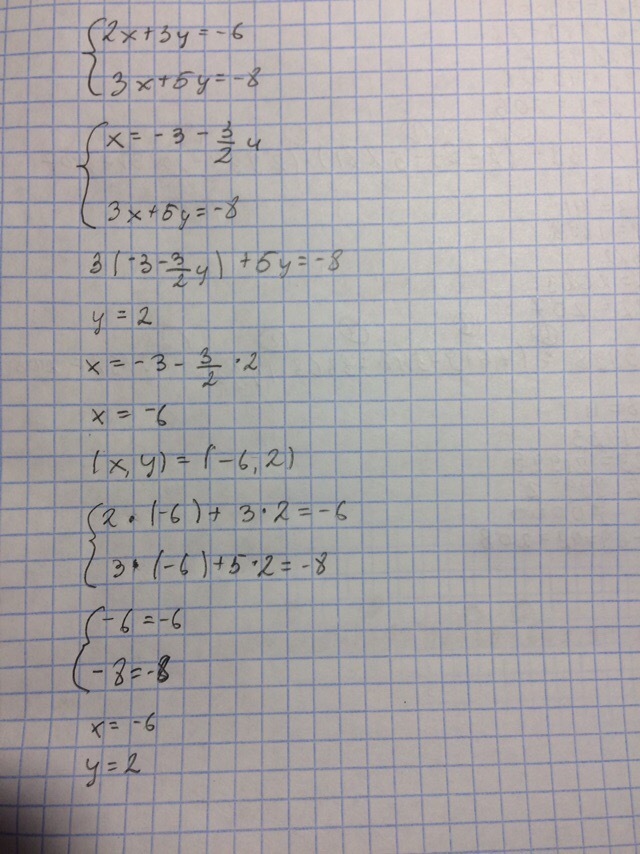 {2x+3y=-6
3x+5y=-8
{x=-3-3/2 y
3x+5y=-8
3(-3-3/2y)+5y=-8
y=2
x=-3-3/2·2
x=-6
(x,y)=(-6,2)
{2·(-6)+3·2=-6
3·(-6)+5·2=-8
{-6=-6
-8=-8
x=-6
y=2